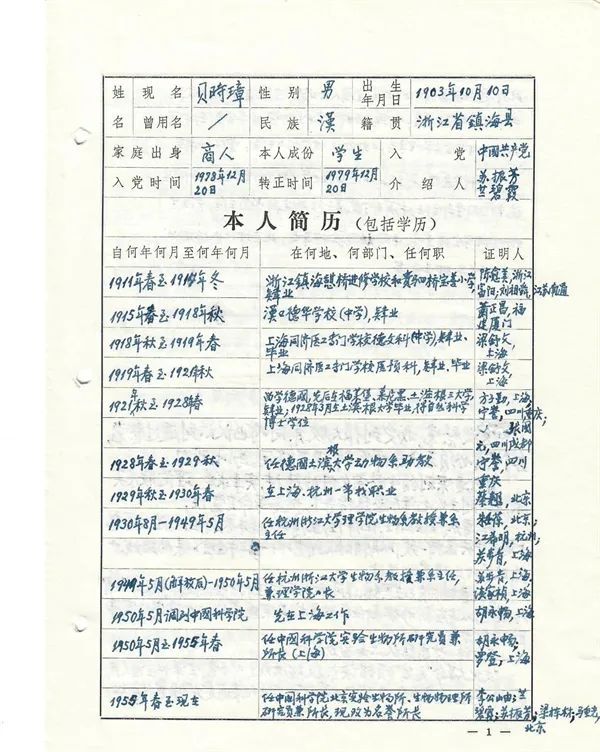 姓 现名 貝時璋 性别 男 出生年月日 1903年10月10日
名 曾用名 / 民族 漢 籍贯 浙江省鎮海县
家庭出身 商人 本人成份 学生 入党 中國共产党
入党时间 1978年12月20日 转正时间 1979年12月20日 介绍人 苏振芳 兰碧霞
本人简历(包括学历)
自何年何月至何年何月 在何地、何部门、任何职 证明人
1911年春至1914年冬 浙江鎮海憩桥进修学校和貴驷桥宝善小学,肄业
1915年春至1918年秋 漢口德华学校(中学),肄业 萧正昌,福建厦门
1918年秋至1919年春 上海同济医工专门学校德文科(中学)肄业、毕业 梁舒文,上海
1919年春至1921年秋 上海同济医工专门学校医预科,肄业、毕业 梁舒文,上海
1921年秋至1928春 留学德國,先后在福莱堡、慕尼黑、土滨根三大学,肄业;1928年3月在土滨根大学毕业,得自然科学博士学位
1928年春至1929秋 任德國土滨根大学动物系助教 宁誉,四川重庆
1929年秋至1930年春 在上海、杭州一带找职业 蔡翘,北京
1930年8月—1949年5月 任杭州浙江大学理学院生物系教授兼系主任 江希明,杭州,苏步青,上海
1949年5月(解放后)-1950年5月 任杭州浙江大学生物系教授兼系主任,兼理学院院长 苏步青,上海,谈家桢,上海
1950年5月调到中国科学院 先在上海工作 胡永畅,上海
1950年5月至1955年春 任中国科学院实验生物所研究员兼所长(上海) 胡永畅,罗登,上海
1955年春至现在 任中国科学院北京实验生物所、生物物理所研究员兼所长,现改为名誉所长 李公岫;兰碧霞;苏振芳;梁栋材,北京
— 1 —